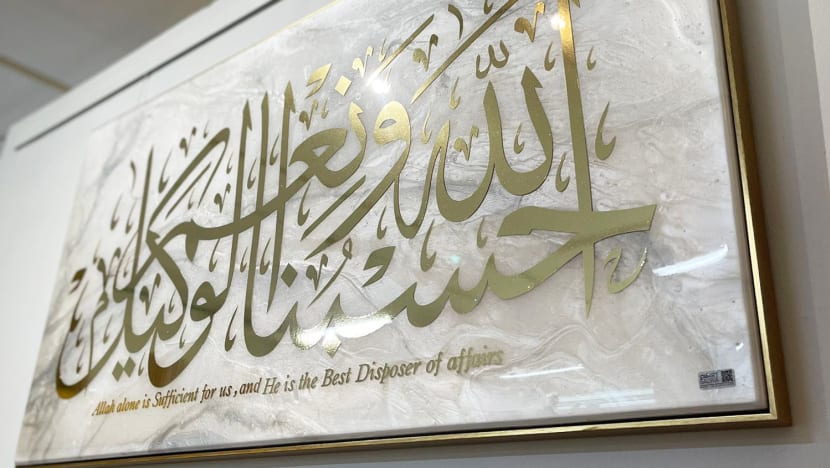 حسبنا الله ونعم الوكيل
Allah alone is Sufficient for us, and He is the Best Disposer of affairs